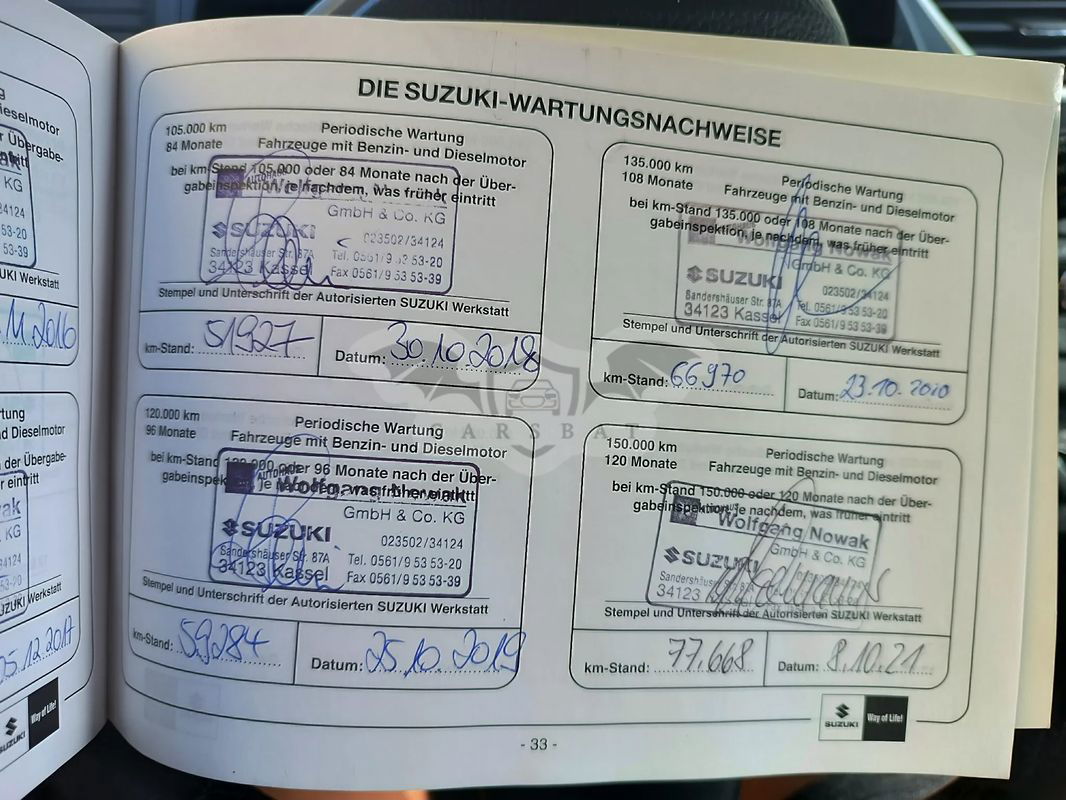 ieselmotor
r Übergabe-
34124
53-20
53-39
UZUKI Werkstatt
11.2016
rtung
d Dieselmotor
der Übergabe-
r eintritt
UZUKI Werkstatt
05.12.2017
SUZUKI
Way of Life!
DIE SUZUKI-WARTUNGSNACHWEISE
105.000 km
84 Monate
Periodische Wartung
Fahrzeuge mit Benzin- und Dieselmotor
bei km-Stand 105.000 oder 84 Monate nach der Über-
gabeinspektion, je nachdem, was früher eintritt
AUTOHAUS
Wolfgang Nowak
GmbH & Co. KG
SUZUKI
023502/34124
Sandershäuser Str. 87A
Tel. 0561/9 53 53-20
34123 Kassel
Fax 0561/9 53 53-39
Stempel und Unterschrift der Autorisierten SUZUKI Werkstatt
km-Stand: 51927
Datum: 30.10.2018
120.000 km
96 Monate
Periodische Wartung
Fahrzeuge mit Benzin- und Dieselmotor
bei km-Stand 120.000 oder 96 Monate nach der Über-
gabeinspektion, je nachdem, was früher eintritt
AUTOHAUS
Wolfgang Nowak
GmbH & Co. KG
SUZUKI
023502/34124
Sandershäuser Str. 87A
Tel. 0561/9 53 53-20
34123 Kassel
Fax 0561/9 53 53-39
Stempel und Unterschrift der Autorisierten SUZUKI Werkstatt
km-Stand: 59284
Datum: 25.10.2019
135.000 km
108 Monate
Periodische Wartung
Fahrzeuge mit Benzin- und Dieselmotor
bei km-Stand 135.000 oder 108 Monate nach der Über-
gabeinspektion, je nachdem, was früher eintritt
Wolfgang Nowak
GmbH & Co. KG
SUZUKI
023502/34124
Sandershäuser Str. 87A
Tel. 0561/9 53 53-20
34123 Kassel
Fax 0561/9 53 53-39
Stempel und Unterschrift der Autorisierten SUZUKI Werkstatt
km-Stand: 66970
Datum: 23.10.2020
150.000 km
120 Monate
Periodische Wartung
Fahrzeuge mit Benzin- und Dieselmotor
bei km-Stand 150.000 oder 120 Monate nach der Über-
gabeinspektion, je nachdem, was früher eintritt
Wolfgang Nowak
GmbH & Co. KG
SUZUKI
Sandershäuser Str.
34123
Stempel und Unterschrift der Autorisierten SUZUKI Werkstatt
km-Stand: 77.668
Datum: 8.10.21
CARSBAT
SUZUKI
Way of Life!
- 33 -